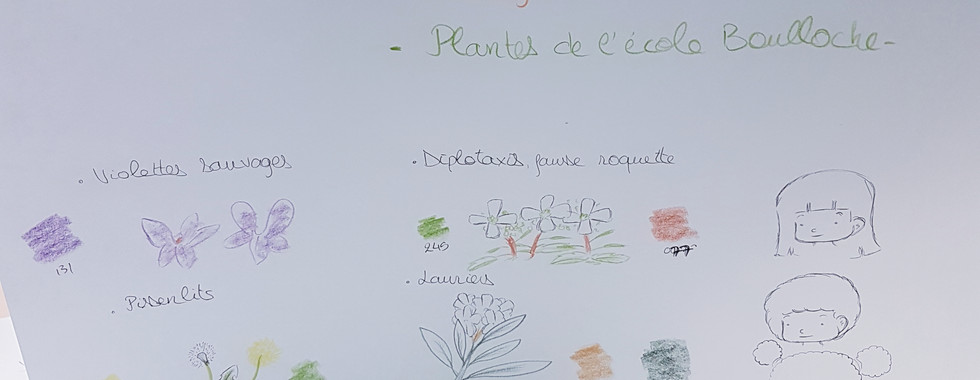 - Plantes de l'école Boulloche -
. Violettes sauvages
131
. Diplotaxis, fausse roquette
245
. Pissenlits
. Lauriers